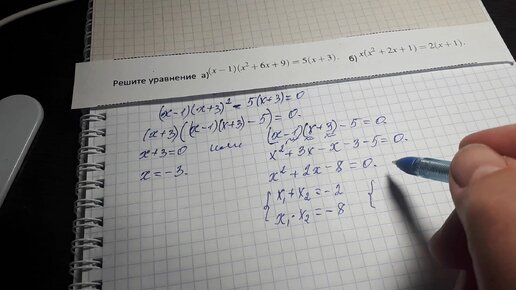 Решите уравнение а) (x − 1)(x² + 6x + 9) = 5(x + 3). б) x(x² + 2x + 1) = 2(x + 1).
(x-1)(x+3)² - 5(x+3) = 0.
(x+3)((x-1)(x+3) - 5) = 0.
x+3=0 или (x-1)(x+3) - 5 = 0.
x = -3. x² + 3x - x - 3 - 5 = 0.
x² + 2x - 8 = 0.
{ x₁ + x₂ = -2 {
x₁ · x₂ = -8